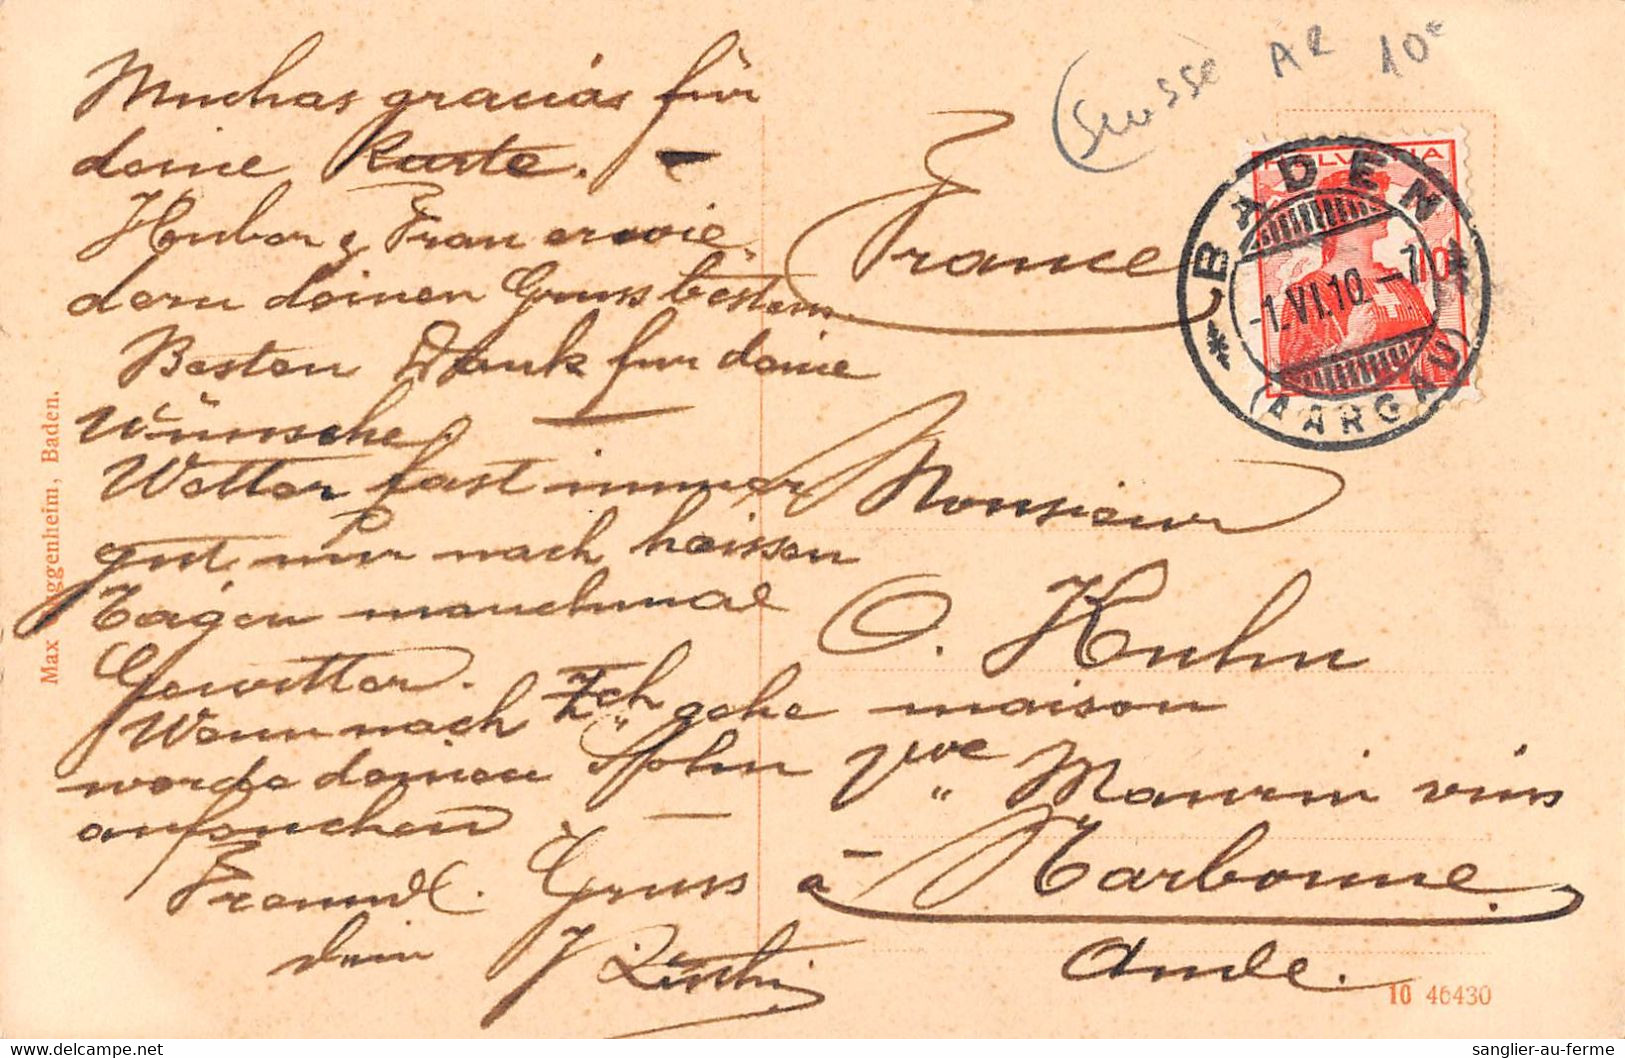 Muchas gracias für
deine Karte. –
Huber & Frau erwie
dern deinen Gruss bestens
Besten Dank fur deine
Wünsche. –
Wetter fast immer
gut, nur nach heissen
Tagen manchmal
Gewitter.
Wenn nach Zch gehe
werde deinen Sohn
aufsuchen –
Freundl. Gruss
dein J
Suisse AR 10€
France
HELVETIA
10
BADEN
-1.VI.10.–7
(AARGAU)
Monsieur
O. Kuhn
maison
Vve Maurin vins
à Narbonne.
Aude.
Max Guggenheim, Baden.
10 46430
sanglier-au-ferme